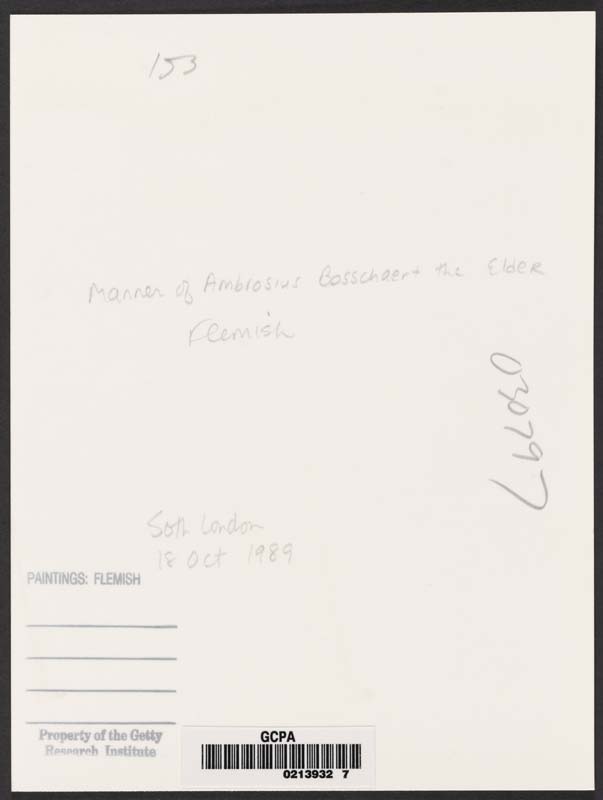 153
Manner of Ambrosius Bosschaert the Elder
Flemish
Soth London
18 Oct 1989
PAINTINGS: FLEMISH
Property of the Getty
Research Institute
GCPA
0213932 7